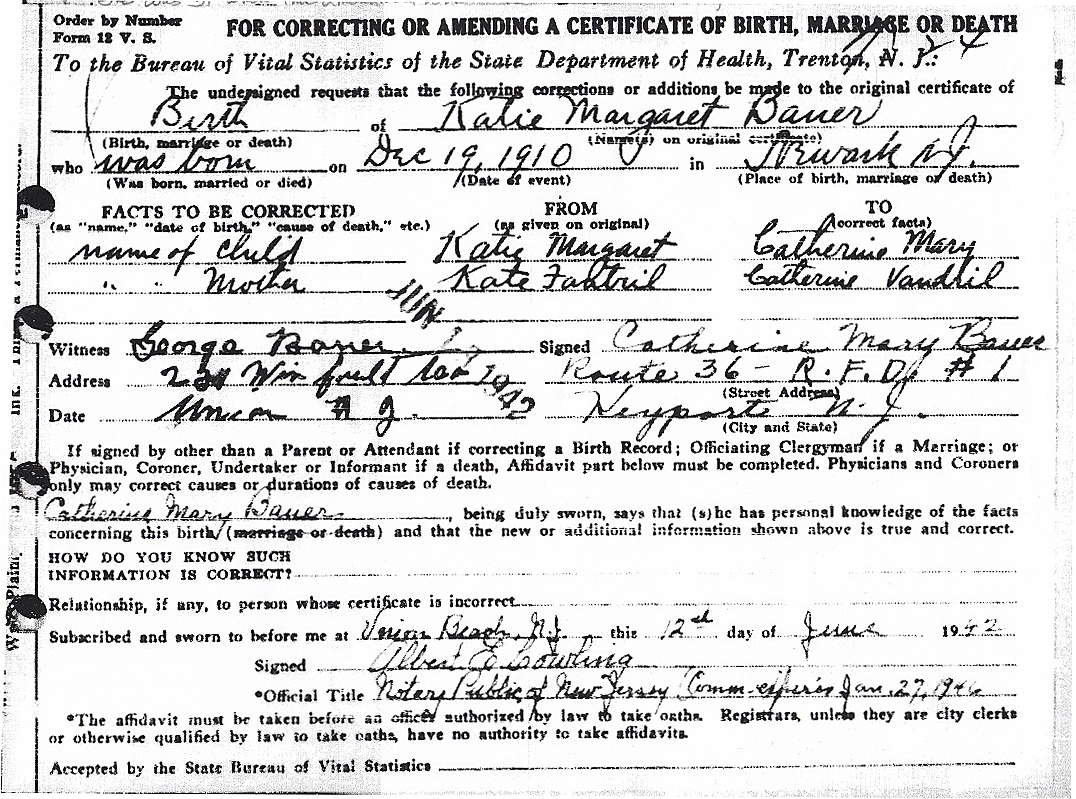 Order by Number
Form 12 V. S.
FOR CORRECTING OR AMENDING A CERTIFICATE OF BIRTH, MARRIAGE OR DEATH
To the Bureau of Vital Statistics of the State Department of Health, Trenton, N. J.:
The undersigned requests that the following corrections or additions be made to the original certificate of
Birth of Katie Margaret Bauer
(Birth, marriage or death) (Name(s) on original certificate)
who was born on Dec 19, 1910 in Newark N.J.
(Was born, married or died) (Date of event) (Place of birth, marriage or death)
FACTS TO BE CORRECTED FROM TO
(as "name," "date of birth," "cause of death," etc.) (as given on original) (correct facts)
name of Child Katie Margaret Catherine Mary
" " Mother Kate Fantril Catherine Vandril
JUN 1942
Witness George Bauer Signed Catherine Mary Bauer
Address Route 36 - R.F.D. #1
(Street Address)
Date Union N J. Keyport N.J.
(City and State)
If signed by other than a Parent or Attendant if correcting a Birth Record; Officiating Clergyman if a Marriage; or
Physician, Coroner, Undertaker or Informant if a death, Affidavit part below must be completed. Physicians and Coroners
only may correct causes or durations of causes of death.
Catherine Mary Bauer, being duly sworn, says that (s)he has personal knowledge of the facts
concerning this birth (marriage or death) and that the new or additional information shown above is true and correct.
HOW DO YOU KNOW SUCH
INFORMATION IS CORRECT?
Relationship, if any, to person whose certificate is incorrect
Subscribed and sworn to before me at Union Beach, N.J. this 12th day of June 1942
Signed Albert E Cowling
*Official Title Notary Public of New Jersey Comm-expires Jan. 27, 1946
*The affidavit must be taken before an officer authorized by law to take oaths. Registrars, unless they are city clerks
or otherwise qualified by law to take oaths, have no authority to take affidavits.
Accepted by the State Bureau of Vital Statistics